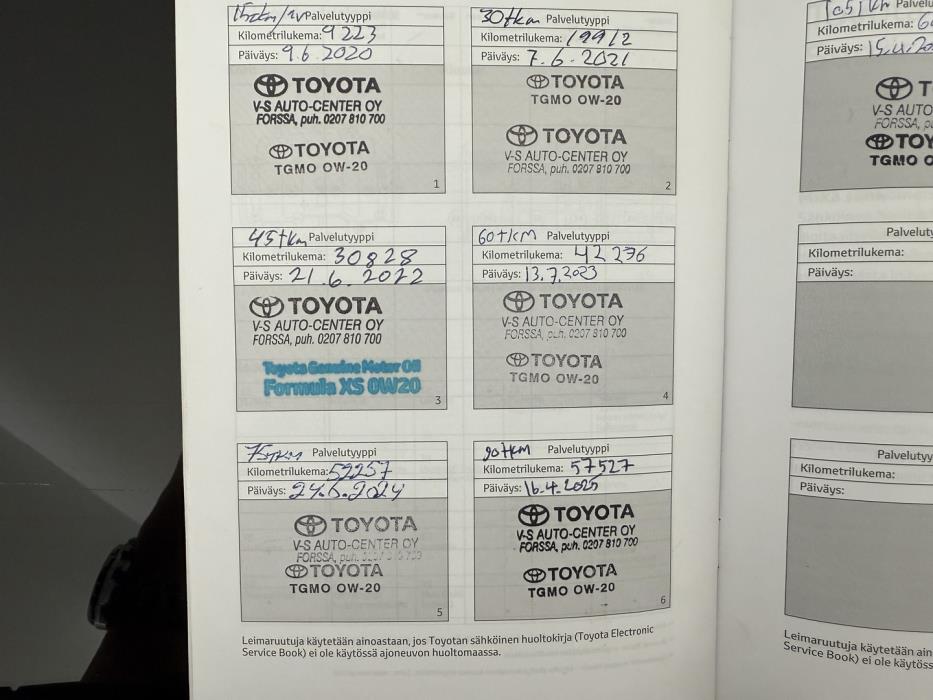 15tkm/1v Palvelutyyppi
Kilometrilukema: 9223
Päiväys: 9.6.2020
TOYOTA
V-S AUTO-CENTER OY
FORSSA, puh. 0207 810 700
TOYOTA
TGMO OW-20
1
30tkm Palvelutyyppi
Kilometrilukema: 19912
Päiväys: 7.6.2021
TOYOTA
TGMO OW-20
TOYOTA
V-S AUTO-CENTER OY
FORSSA, puh. 0207 810 700
2
45tkm Palvelutyyppi
Kilometrilukema: 30828
Päiväys: 21.6.2022
TOYOTA
V-S AUTO-CENTER OY
FORSSA, puh. 0207 810 700
Toyota Genuine Motor Oil
Formula XS 0W20
3
60tKM Palvelutyyppi
Kilometrilukema: 42276
Päiväys: 13.7.2023
TOYOTA
V-S AUTO-CENTER OY
FORSSA, puh. 0207 810 700
TOYOTA
TGMO OW-20
4
75tkm Palvelutyyppi
Kilometrilukema: 52257
Päiväys: 24.6.2024
TOYOTA
V-S AUTO-CENTER OY
FORSSA, puh. 0207 810 700
TOYOTA
TGMO OW-20
5
90tkm Palvelutyyppi
Kilometrilukema: 57527
Päiväys: 16.4.2025
TOYOTA
V-S AUTO-CENTER OY
FORSSA, puh. 0207 810 700
TOYOTA
TGMO OW-20
6
Leimaruutuja käytetään ainoastaan, jos Toyotan sähköinen huoltokirja (Toyota Electronic
Service Book) ei ole käytössä ajoneuvon huoltomaassa.
Palvelu
Kilometrilukema: 6
Päiväys: 15.4.20
T
V-S AUTO
FORSSA, p
TOY
TGMO O
Palvelut
Kilometrilukema:
Päiväys:
Palvelutyy
Kilometrilukema:
Päiväys:
Leimaruutuja käytetään ain
Service Book) ei ole käytöss